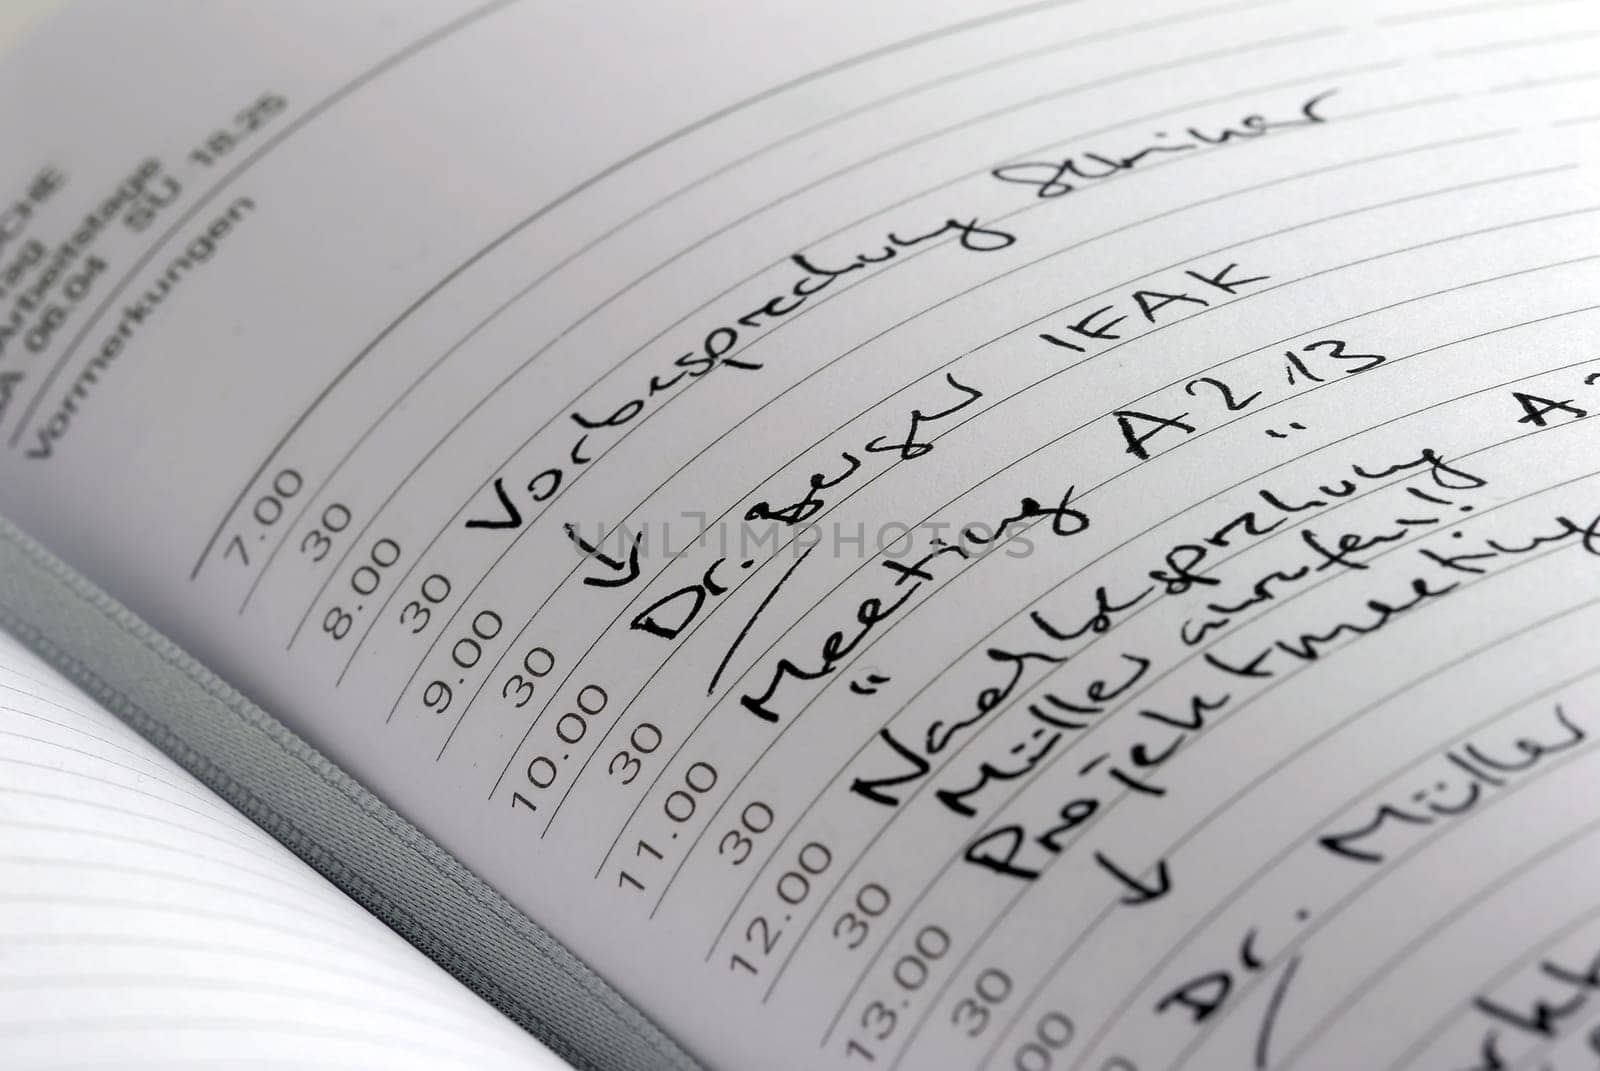 CHE
Tag
Arbeitstage
SA 06.04 SU 18.25
Vormerkungen
7.00
30
8.00
30 Vorbesprechung Seminar
9.00 ↓
30 Dr. Berger IFAK
10.00 /
30 Meeting A2.13
11.00 " "
30 Nachbesprechung A2
12.00 Müller anrufen!!
30 Projektmeeting
13.00 ↓
30
00 Dr. Müller
UNLIMPHOTOS